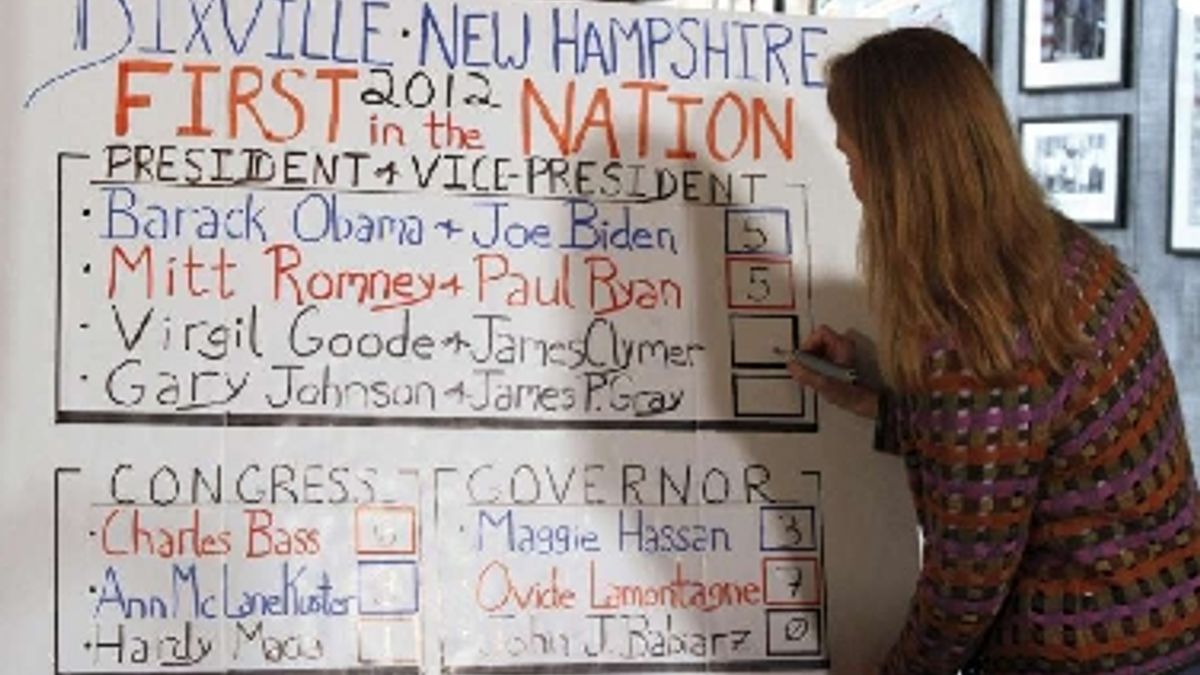 DIXVILLE · NEW HAMPSHIRE
FIRST 2012 in the NATION
PRESIDENT + VICE-PRESIDENT
· Barack Obama + Joe Biden 5
· Mitt Romney + Paul Ryan 5
· Virgil Goode + James Clymer
· Gary Johnson + James P. Gray
CONGRESS
· Charles Bass 6
· Ann McLane Kuster
· Hardy Macia 1
GOVERNOR
· Maggie Hassan 3
Ovide Lamontagne 7
John J. Babiarz 0